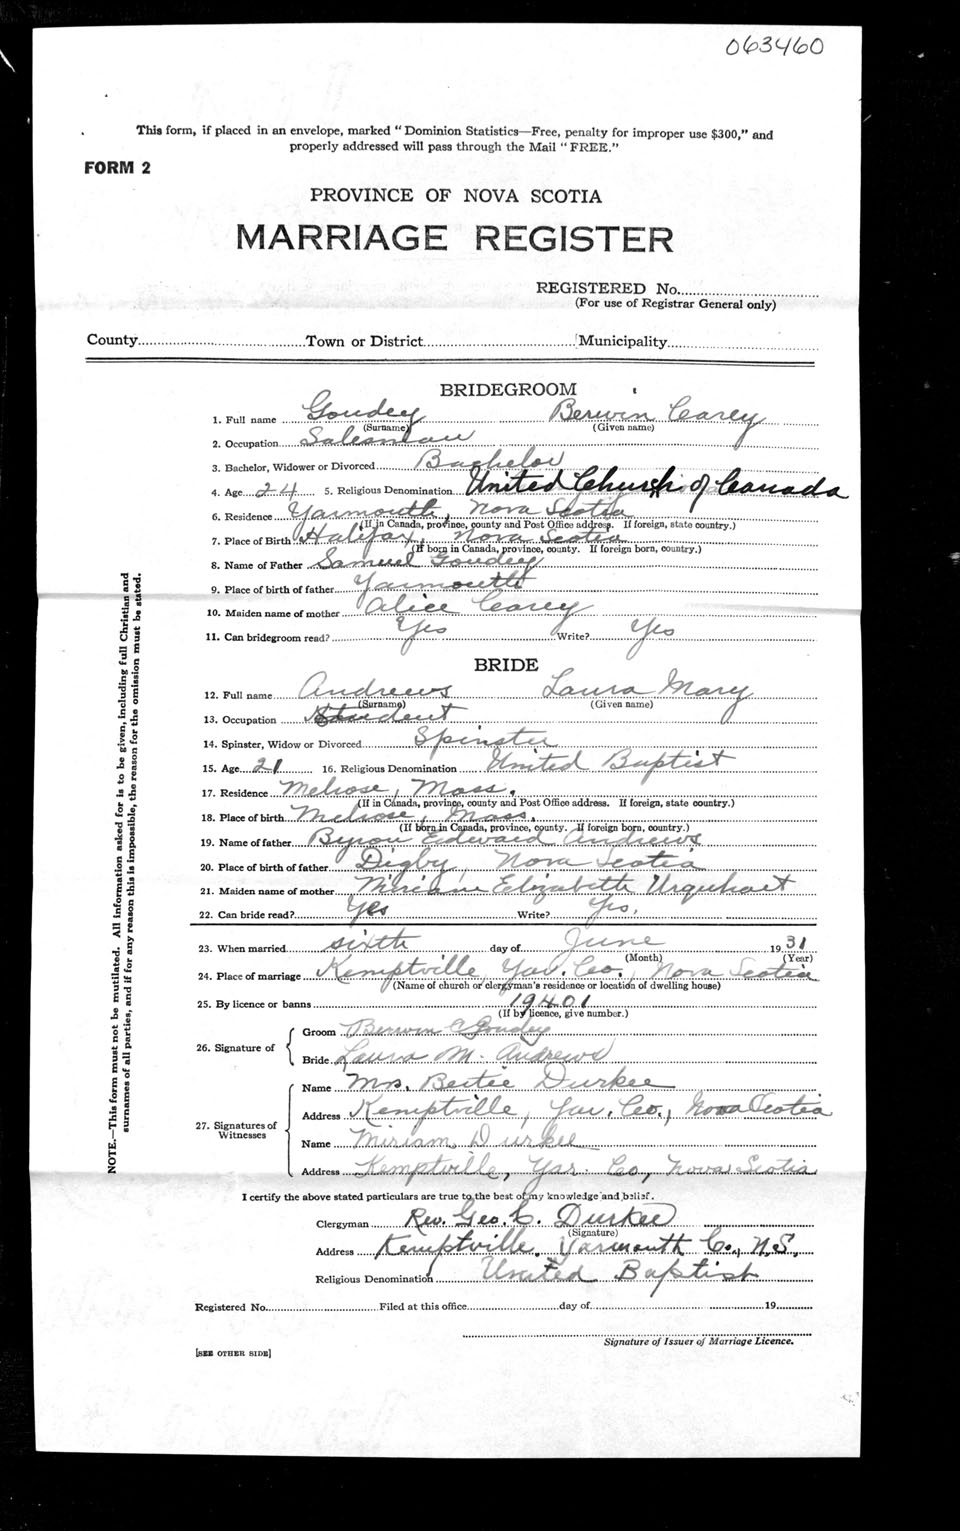 063460
This form, if placed in an envelope, marked "Dominion Statistics—Free, penalty for improper use $300," and
properly addressed will pass through the Mail "FREE."
FORM 2
PROVINCE OF NOVA SCOTIA
MARRIAGE REGISTER
REGISTERED No.
(For use of Registrar General only)
County Town or District Municipality
BRIDEGROOM
1. Full name Goudey Berwin Carey
(Surname) (Given name)
2. Occupation Salesman
3. Bachelor, Widower or Divorced Bachelor
4. Age 24 5. Religious Denomination United Church of Canada
6. Residence Yarmouth, Nova Scotia
(If in Canada, province, county and Post Office address. If foreign, state country.)
7. Place of Birth Halifax, Nova Scotia
(If born in Canada, province, county. If foreign born, country.)
8. Name of Father Samuel Goudey
9. Place of birth of father Yarmouth
10. Maiden name of mother Alice Carey
11. Can bridegroom read? Yes Write? Yes
BRIDE
12. Full name Andrews Laura Mary
(Surname) (Given name)
13. Occupation Student
14. Spinster, Widow or Divorced Spinster
15. Age 21 16. Religious Denomination United Baptist
17. Residence Melrose, Mass.
(If in Canada, province, county and Post Office address. If foreign, state country.)
18. Place of birth Melrose, Mass.
(If born in Canada, province, county. If foreign born, country.)
19. Name of father Byron Edward Andrews
20. Place of birth of father Digby, Nova Scotia
21. Maiden name of mother Miriam Elizabeth Urquhart
22. Can bride read? Yes Write? Yes.
23. When married sixth day of June 1931
(Month) (Year)
24. Place of marriage Kemptville, Yar. Co., Nova Scotia
(Name of church or clergyman's residence or location of dwelling house)
25. By licence or banns 19401
(If by licence, give number.)
26. Signature of
Groom Berwin C Goudey
Bride Laura M. Andrews
27. Signatures of Witnesses
Name Mrs. Bertie Durkee
Address Kemptville, Yar. Co., Nova Scotia
Name Miriam Durkee
Address Kemptville, Yar. Co, Nova Scotia
I certify the above stated particulars are true to the best of my knowledge and belief.
Clergyman Rev. Geo. C. Durkee
(Signature)
Address Kemptville, Yarmouth Co., N.S.
Religious Denomination United Baptist
Registered No. Filed at this office day of 19
Signature of Issuer of Marriage Licence.
[SEE OTHER SIDE]
NOTE.—This form must not be mutilated. All information asked for is to be given, including full Christian and
surnames of all parties, and if for any reason this is impossible, the reason for the omission must be stated.